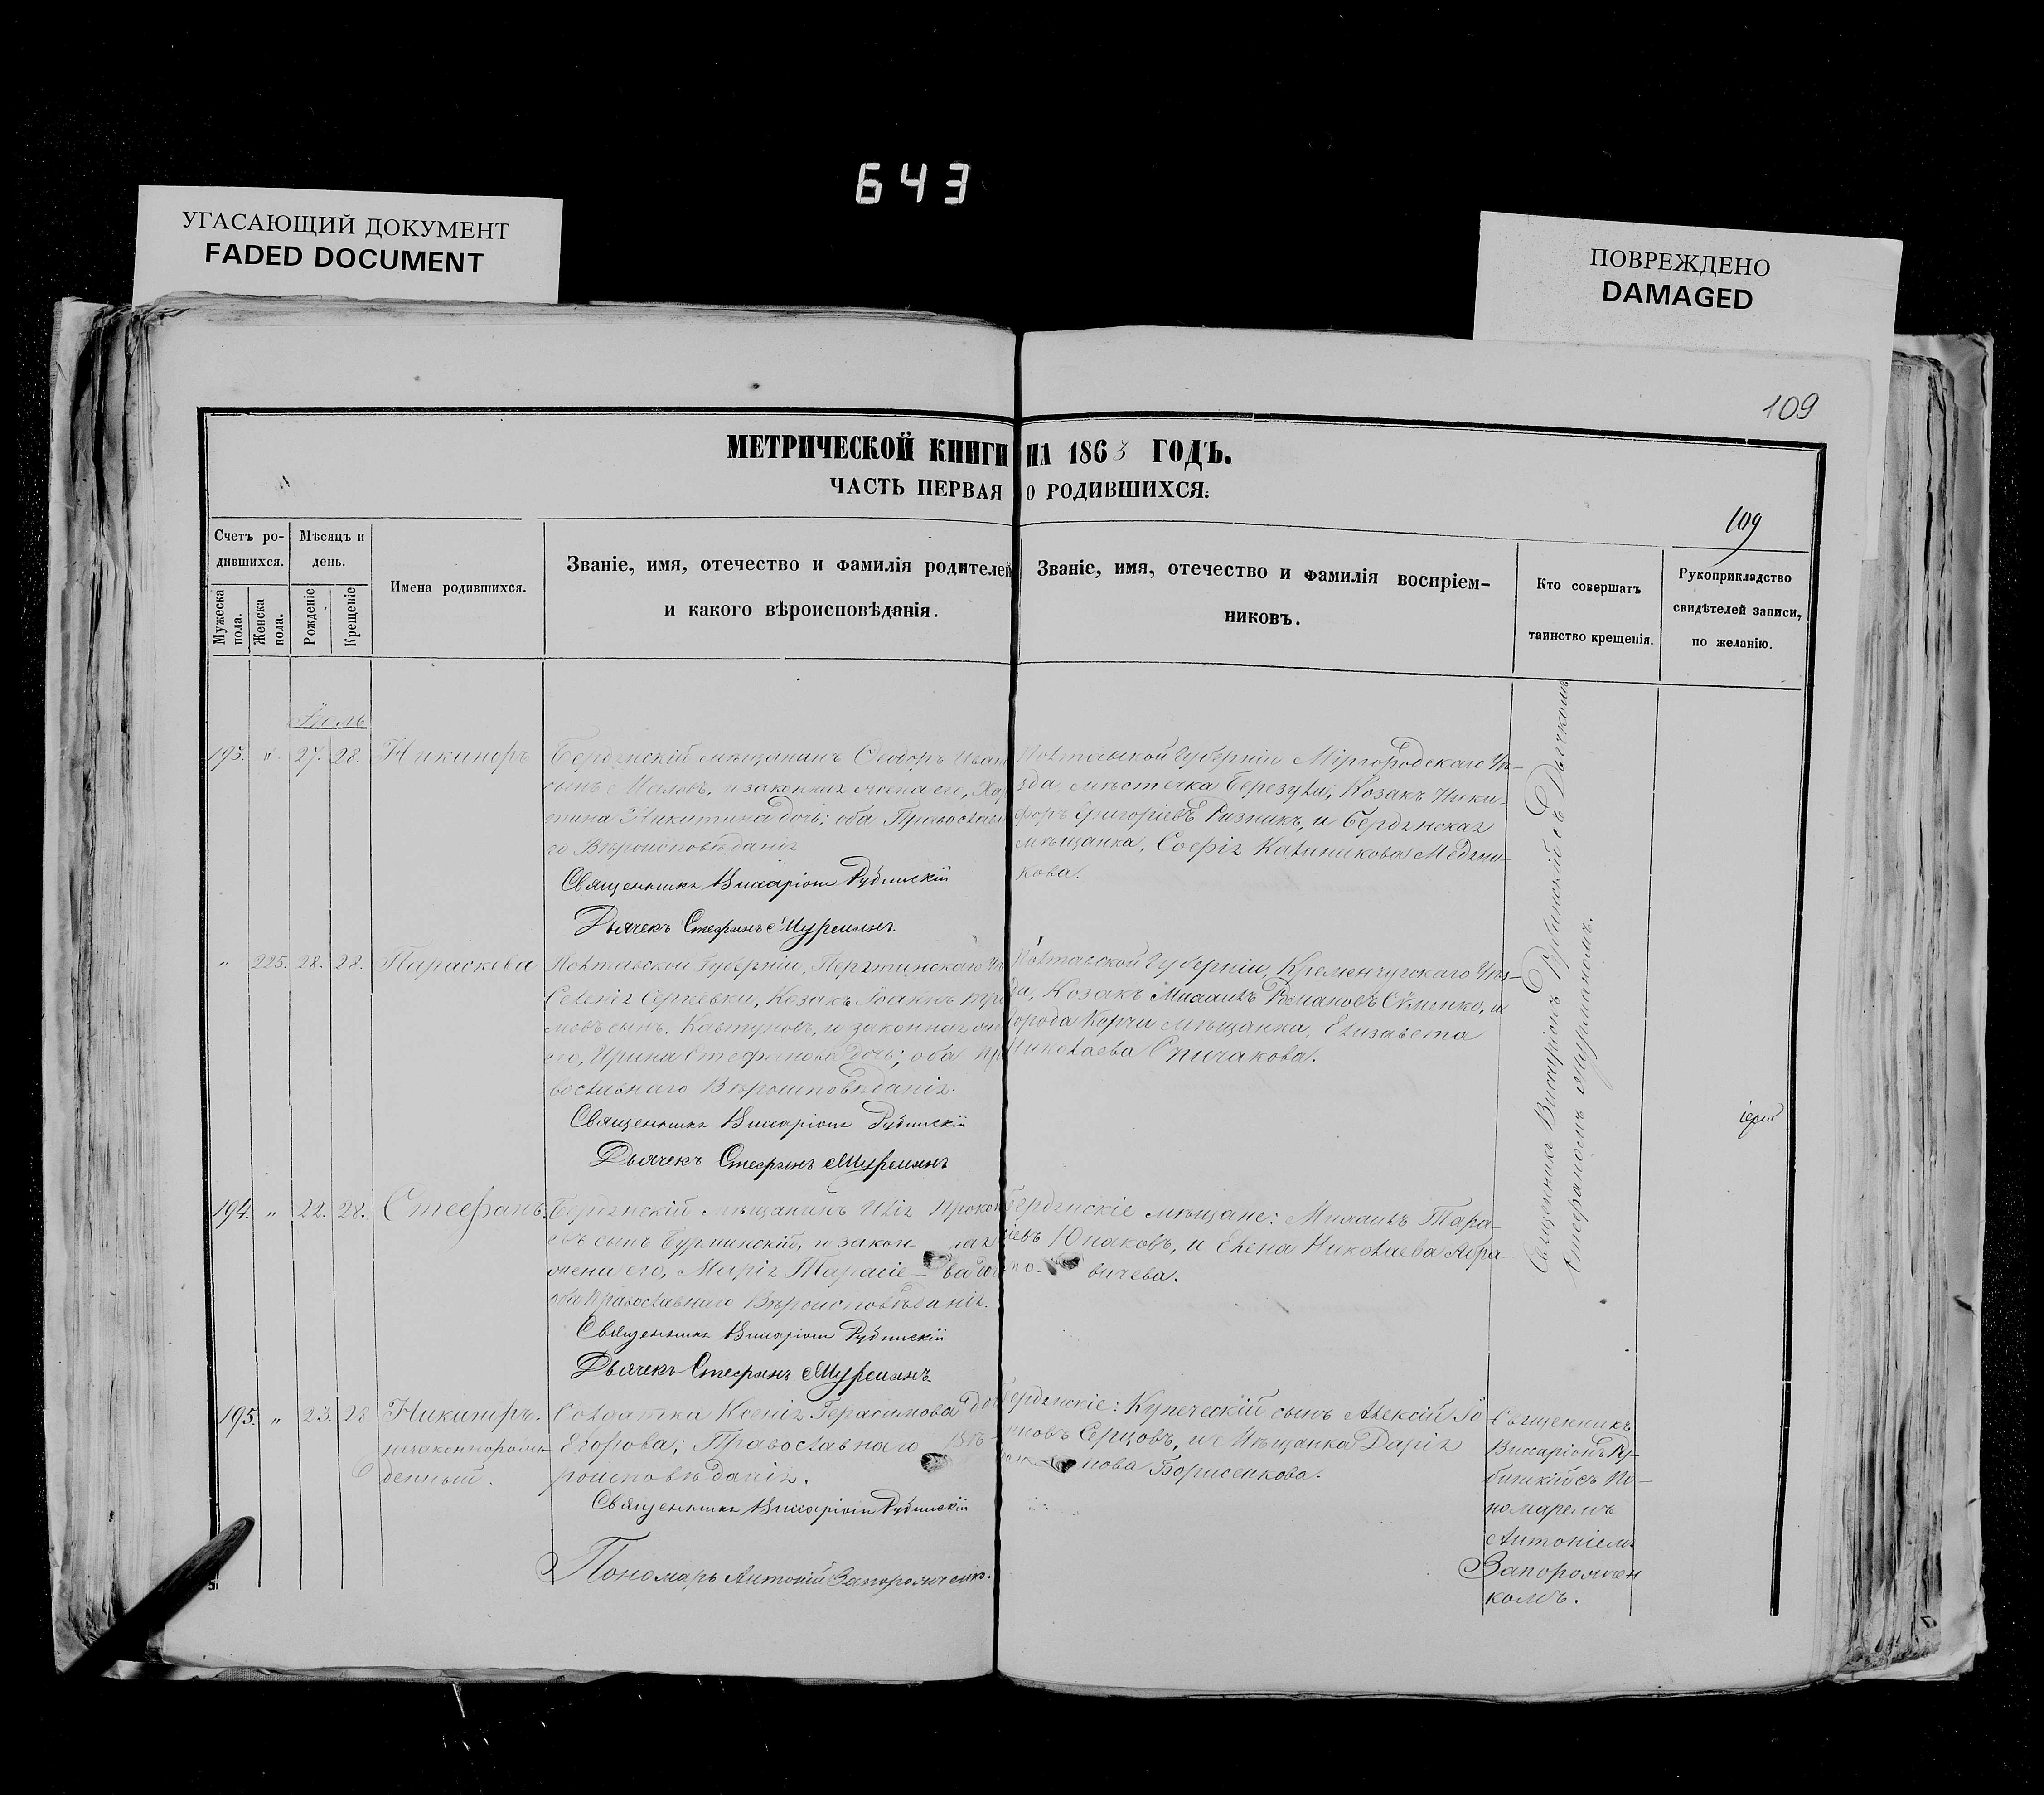 643
УГАСАЮЩИЙ ДОКУМЕНТ
FADED DOCUMENT
ПОВРЕЖДЕНО
DAMAGED
109
МЕТРИЧЕСКОЙ КНИГИ НА 1863 ГОДЪ.
ЧАСТЬ ПЕРВАЯ О РОДИВШИХСЯ.
109
Счетъ ро-
дившихся.
Мужеска пола.
Женска пола.
Мѣсяцъ и
день.
Рожденіе
Крещеніе
Имена родившихся.
Званіе, имя, отечество и фамилія родителей
и какого вѣроисповѣданія.
Званіе, имя, отечество и фамилія воспріем-
никовъ.
Кто совершатъ
таинство крещенія.
Рукоприкладство
свидѣтелей записи,
по желанію.
193. " 27. 28. Никаноръ
Бердянскій мѣщанинъ Ѳеодоръ Иван
сынъ Маловъ, и законная жена его, Хар
тина Никитина дочь; оба Православна
го Вѣроисповѣданія
Священникъ Виссаріонъ Рубинскій
Дьячекъ Стефанъ
Полтавской Губерніи Міргородскаго Уѣ-
зда, мѣстечка Козакъ Ники-
форъ Григоріевъ Ризникъ, и Бердянская
мѣщанка, Софія Калиникова Медяни-
кова.
" 225. 28. 28. Параскева
Полтавской Губерніи, Пирятинскаго Уѣ
Селенія Сергѣевки, Козакъ Іоаннъ
мовъ сынъ, Кавтуновъ, и законная
его, Ирина Стефанова дочь; оба пра
вославнаго Вѣроисповѣданія.
Священникъ Виссаріонъ Рубинскій
Дьячекъ Стефанъ
Полтавской Губерніи, Кременчугскаго Уѣз-
да, Козакъ Михаилъ Романовъ и
города Керчи мѣщанка, Елизавета
Николаева Спичакова.
Священникъ Виссаріонъ Рубинскій съ Дьячкомъ
Стефаномъ
іерей
194. " 22. 28. Стефанъ.
Бердянскій мѣщанинъ Илія Прокоп
евъ сынъ Бурминскій, и закон- ная
жена его, Марія Тарасіе- ва доч
оба Православнаго Вѣроисповѣданія.
Священникъ Виссаріонъ Рубинскій
Дьячекъ Стефанъ
Бердянскіе мѣщане: Михаилъ Тара-
сіевъ Юнаковъ, и Елена Николаева
вичева.
195. " 23. 28. Никаноръ.
незаконнорож-
денный.
Солдатка Ксенія Герасимова доч
Егорова; Православнаго Вѣ-
роисповѣданія.
Священникъ Виссаріонъ Рубинскій
Пономарь Антоній Запорожченко.
Бердянскіе: Купеческій сынъ Алексій Іо
нновъ Серцовъ, и Мѣщанка Дарія
нова Борисенкова.
Священникъ
Виссаріонъ Ру-
бинскій съ По-
номаремъ
Антоніемъ
Запорожчен
комъ.